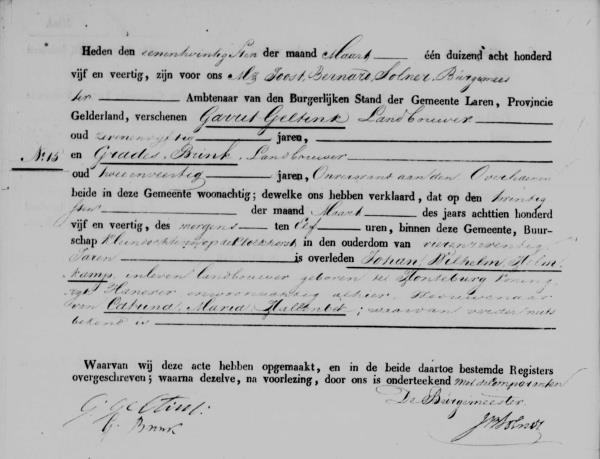 Heden den zevenentwintigsten der maand Maart één duizend acht honderd
vijf en veertig, zijn voor ons Mr Joost Bernard Solner, Burgemees
ter Ambtenaar van den Burgerlijken Stand der Gemeente Laren, Provincie
Gelderland, verschenen Garrit Geltink Landbouwer
oud jaren,
No. 15 en Grades Brink, Landbouwer
oud tweeenveertig jaren, Onverwant aan den Overledenen
beide in deze Gemeente woonachtig; dewelke ons hebben verklaard, dat op den twintig
sten der maand Maart des jaars achttien honderd
vijf en veertig, des morgens ten Elf uren, binnen deze Gemeente, Buur-
schap in den ouderdom van vierenzeventig
Jaren is overleden Johan Wilhelm Holm
kamp, in leven landbouwer geboren te Koning
rijk Hanover en woonachtig alhier, Weduwenaar
van Maria ; waarvan verder niets
bekend is
Waarvan wij deze acte hebben opgemaakt, en in de beide daartoe bestemde Registers
overgeschreven; waarna dezelve, na voorlezing, door ons is onderteekend met de Comparanten
De Burgemeester
G. Geltink
G. Brink
JBSolner